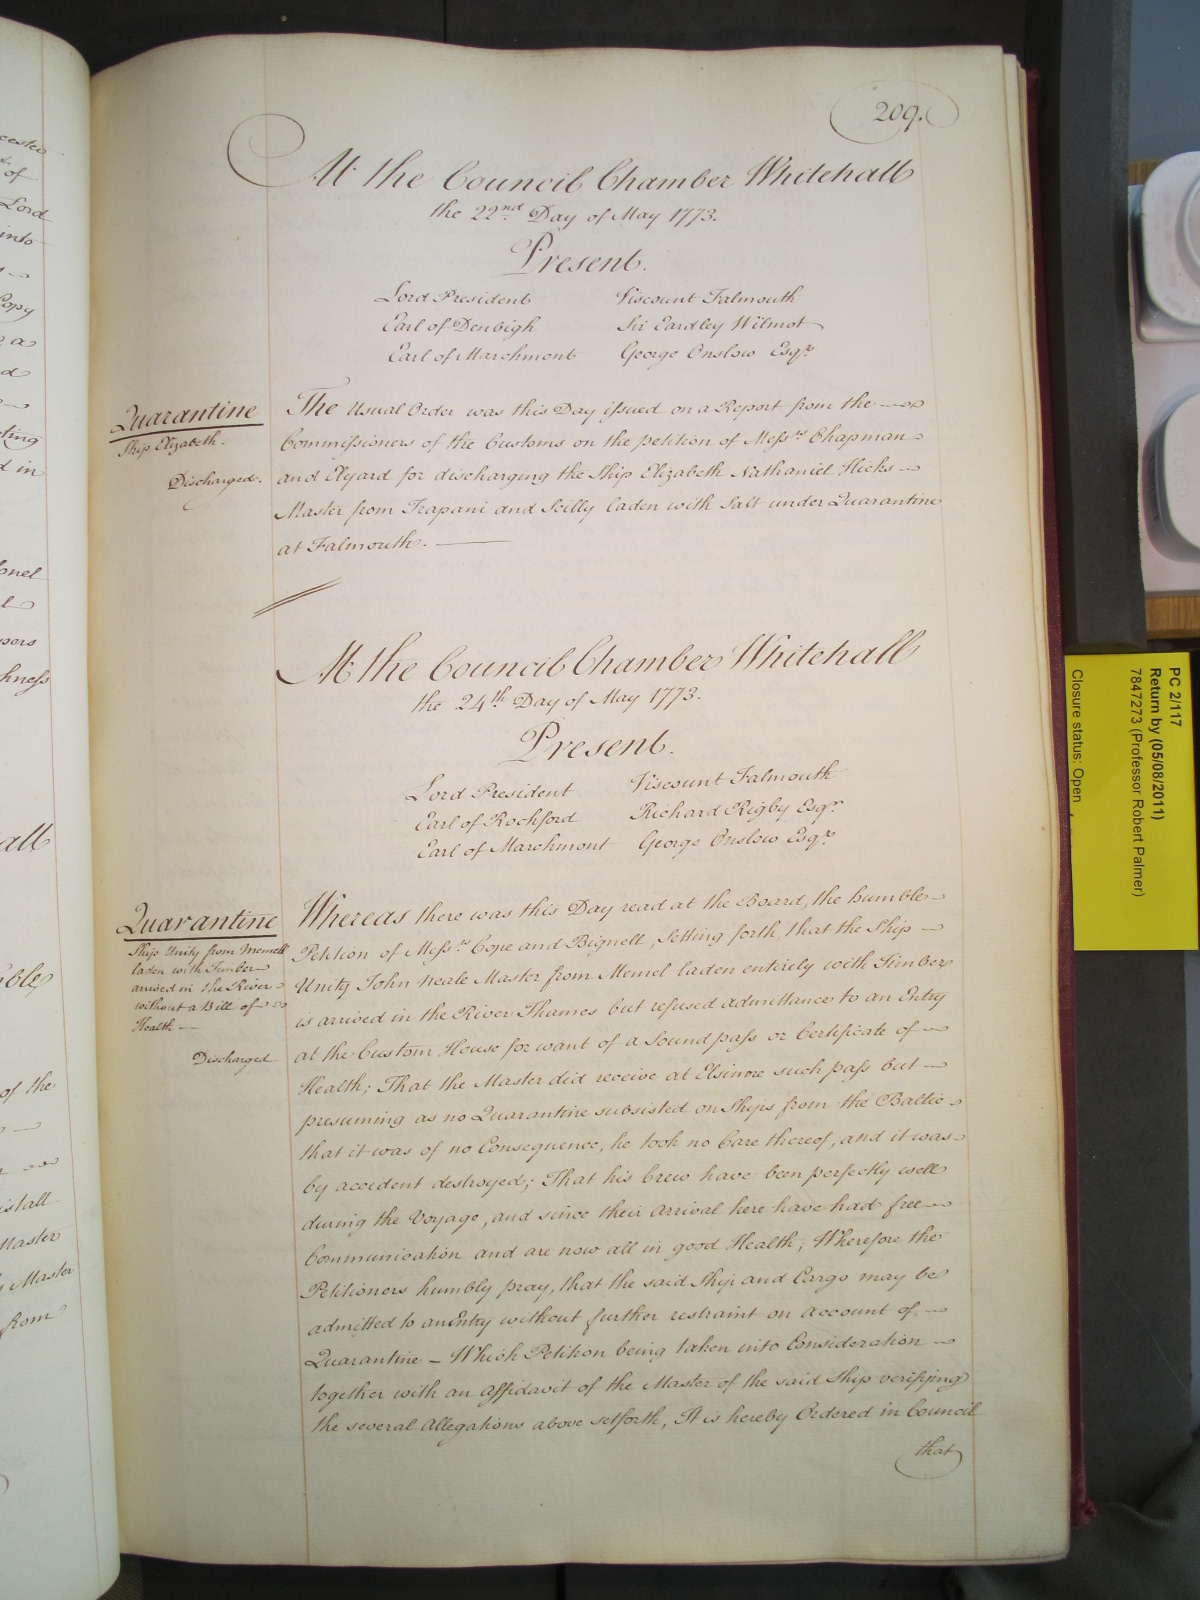 209.
At the Council Chamber Whitehall
the 22nd Day of May 1773.
Present.
Lord President Viscount Falmouth
Earl of Denbigh Sir Eardley Wilmot
Earl of Marchmont George Onslow Esqr.
Quarantine
Ship Elizabeth.
Discharged.
The Usual Order was this Day issued on a Report from the
Commissioners of the Customs on the petition of Messrs. Chapman
and Elyard for discharging the Ship Elizabeth Nathaniel Hicks
Master from Trapani and Scilly laden with Salt under Quarantine
at Falmouth.
At the Council Chamber Whitehall
the 24th Day of May 1773.
Present.
Lord President Viscount Falmouth
Earl of Rochford Richard Rigby Esqr.
Earl of Marchmont George Onslow Esqr.
Quarantine
Ship Unity from Memell
laden with Timber
arrived in the River
without a Bill of
Health
Discharged
Whereas there was this Day read at the Board, the humble
Petition of Messrs. Cope and Bignell, Setting forth, that the Ship
Unity John Neale Master from Memel laden entirely with Timber
is arrived in the River Thames but refused admittance to an Entry
at the Custom House for want of a Sound pass or Certificate of
Health; That the Master did receive at Elsinore such pass but
presuming as no Quarantine subsisted on Ships from the Baltic
that it was of no Consequence, he took no Care thereof, and it was
by accident destroyed; That his Crew have been perfectly well
during the Voyage, and since their Arrival here have had free
Communication and are now all in good Health; Wherefore the
Petitioners humbly pray, that the said Ship and Cargo may be
admitted to an Entry without further restraint on Account of
Quarantine – Which Petition being taken into Consideration
together with an Affidavit of the Master of the said Ship verifying
the several Allegations above setforth, It is hereby Ordered in Council
that
PC 2/117
Return by (05/08/2011)
7847273 (Professor Robert Palmer)
Closure status: Open